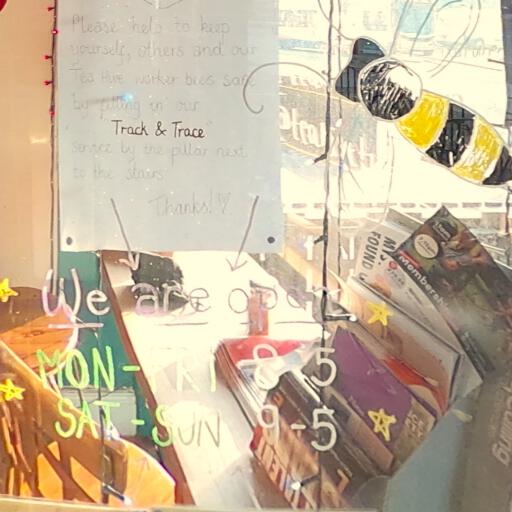 Please help to keep
yourself, others and our
Tea Hive worker bees safe
by filling in our
Track & Trace
service by the pillar next
to the stairs
Thanks!
We are open
MON-FRI 8-5
SAT-SUN 9-5
FOUND
Membership